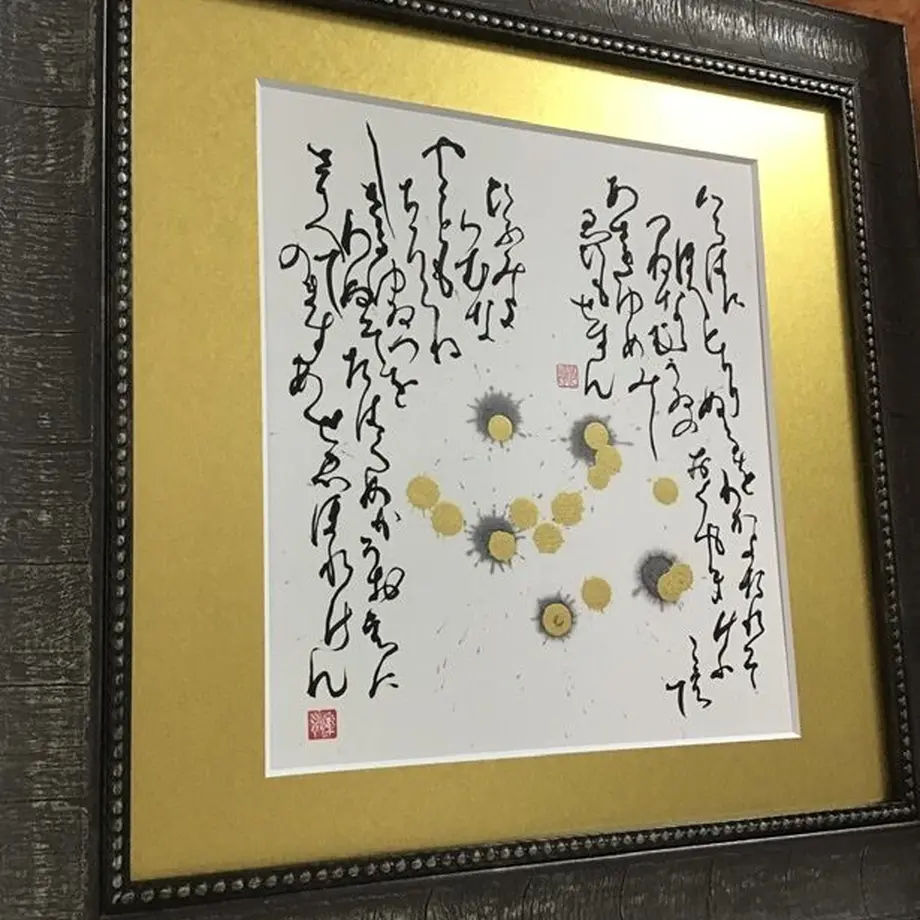 いろはに
ほへとちりぬるを
わかよたれそ
つねならむうゐの
おくやまけふ
こえて
あさきゆめみし
ゑひもせすん
ひふみよ
いむな
やことも
ちろらね
しきる
ゆゐつ
わぬそを
たはくめかうおえに
さりへて
のますあせゑほれけん